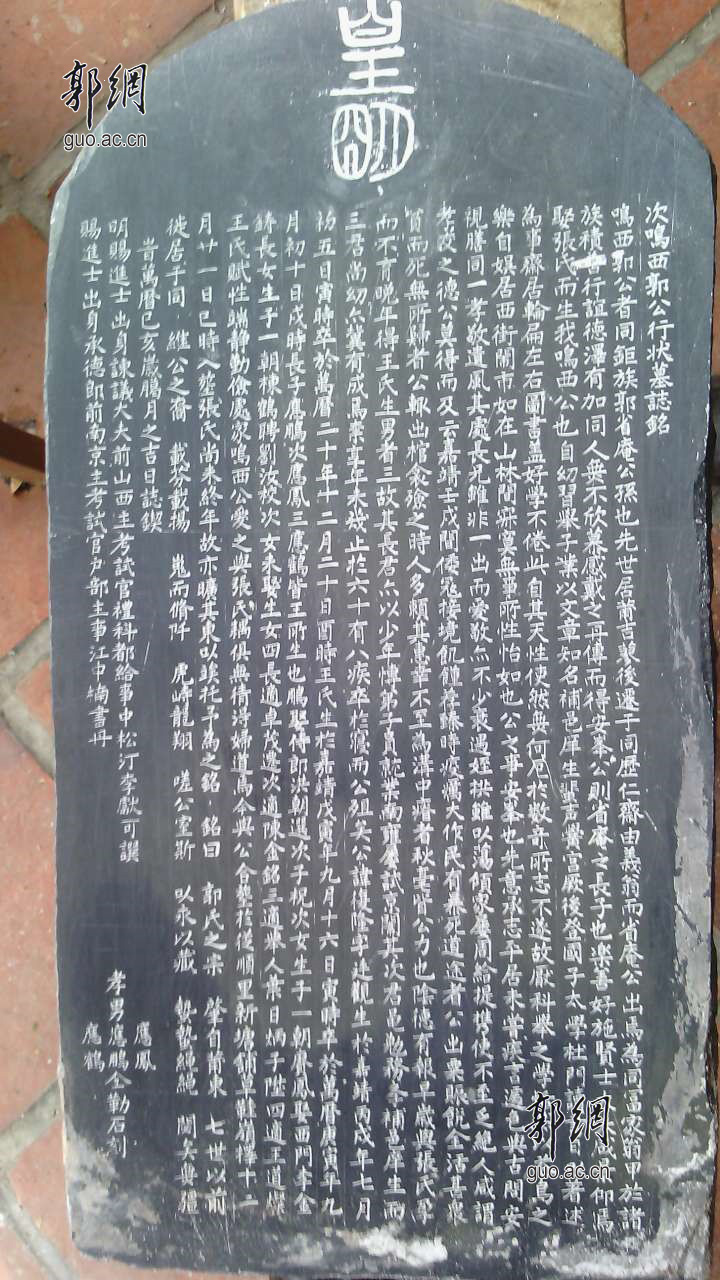 皇明
次鳴西郭公行狀墓誌銘
鳴西郭公者同鉅族郭省庵公孫也先世居莆吉蓼後遷于同歷仁齋由義翁而省庵公出焉為同富家翁甲於諸
族積善行誼德澤有加同人無不欣慕感戴之再傳而得安峯公則省庵之長子也樂善好施賢士 咸 仰焉
娶張氏而生我鳴西公也自幼習舉子業以文章知名補邑庠生蜚聲黌宮厥後登國子太學杜門 著述
為事齋居輪扁左右圖書蓋好學不倦此自其天性使然無何厄於數奇所志不遂故厭科舉之學 焉之
樂自娛居西街鬧市如在山林間寂寞無事所性怡如也公之事安峯也先意承志平居未嘗疾言遽色與古問安
視膳同一孝敬遺風其處長兄雖非一出而愛敬亦不少衰過姪拱雖以蕩傾家屢周給提携使不至乏絕人咸謂
孝友之德公莫得而及云嘉靖壬戌間倭寇接境飢饉荐臻時疫癘大作民有暴死道途者公出粟賑銳全活甚衆
貧而死無所歸者公輒出棺衾殮之時人多頼其惠幸不至為溝中瘠者秋毫皆公力也陰德有報早歲與張氏孕
而不育晚年得王氏生男者三故其長君亦以少年博弟子員就業南雍屢試京闈其次君邑勉務季補邑庠生而
三君尚幼亦冀有成焉柰享年未幾止於六十有八疾卒於寢而公殂矣公諱復隆字達觀生於嘉靖丙戌年七月
初五日寅時卒於萬曆二十年十二月二十日酉時王氏生於嘉靖戊寅年九月十六日寅時卒於萬曆庚寅年九
月初十日戌時長子鷹鵬次鷹鳳三鷹鶴皆王所生也鵬娶侍郎洪朝選次子祝次女生子一朝賡鳳娶西門李金
鉾長女生子一朝棟鶴聘劉汝梭次女未娶生女四長適卓茂遷次適陳金銘三適舉人葉日炳子陛四適王道燦
王氏賦性端靜勤儉處家鳴西公愛之與張氏稱俱無倩得婦道焉今與公合塟於從順里新塘舖草鞋嶺擇十二
月廿一日巳時入壟張氏尚未終年故亦曠其東以竢托予為之銘 銘曰 郭氏之宗 肇自莆東 七世以前
徙居于同 維公之裔 載芬載揚 嵬而脩阡 虎峙龍翔 嗟公室斯 以永以藏 蟄蟄繩繩 閱矣婁疆
旹萬曆己亥歲臘月之吉日誌鍥
明賜進士出身諫議大夫前山西主考試官禮科都給事中松汀李獻可譔
賜進士出身承德郎前南京主考試官戶部主事江中楠書丹
鷹鳳
孝男鷹鵬仝勒石刻
鷹鶴
郭網
guo.ac.cn
郭網
guo.ac.cn